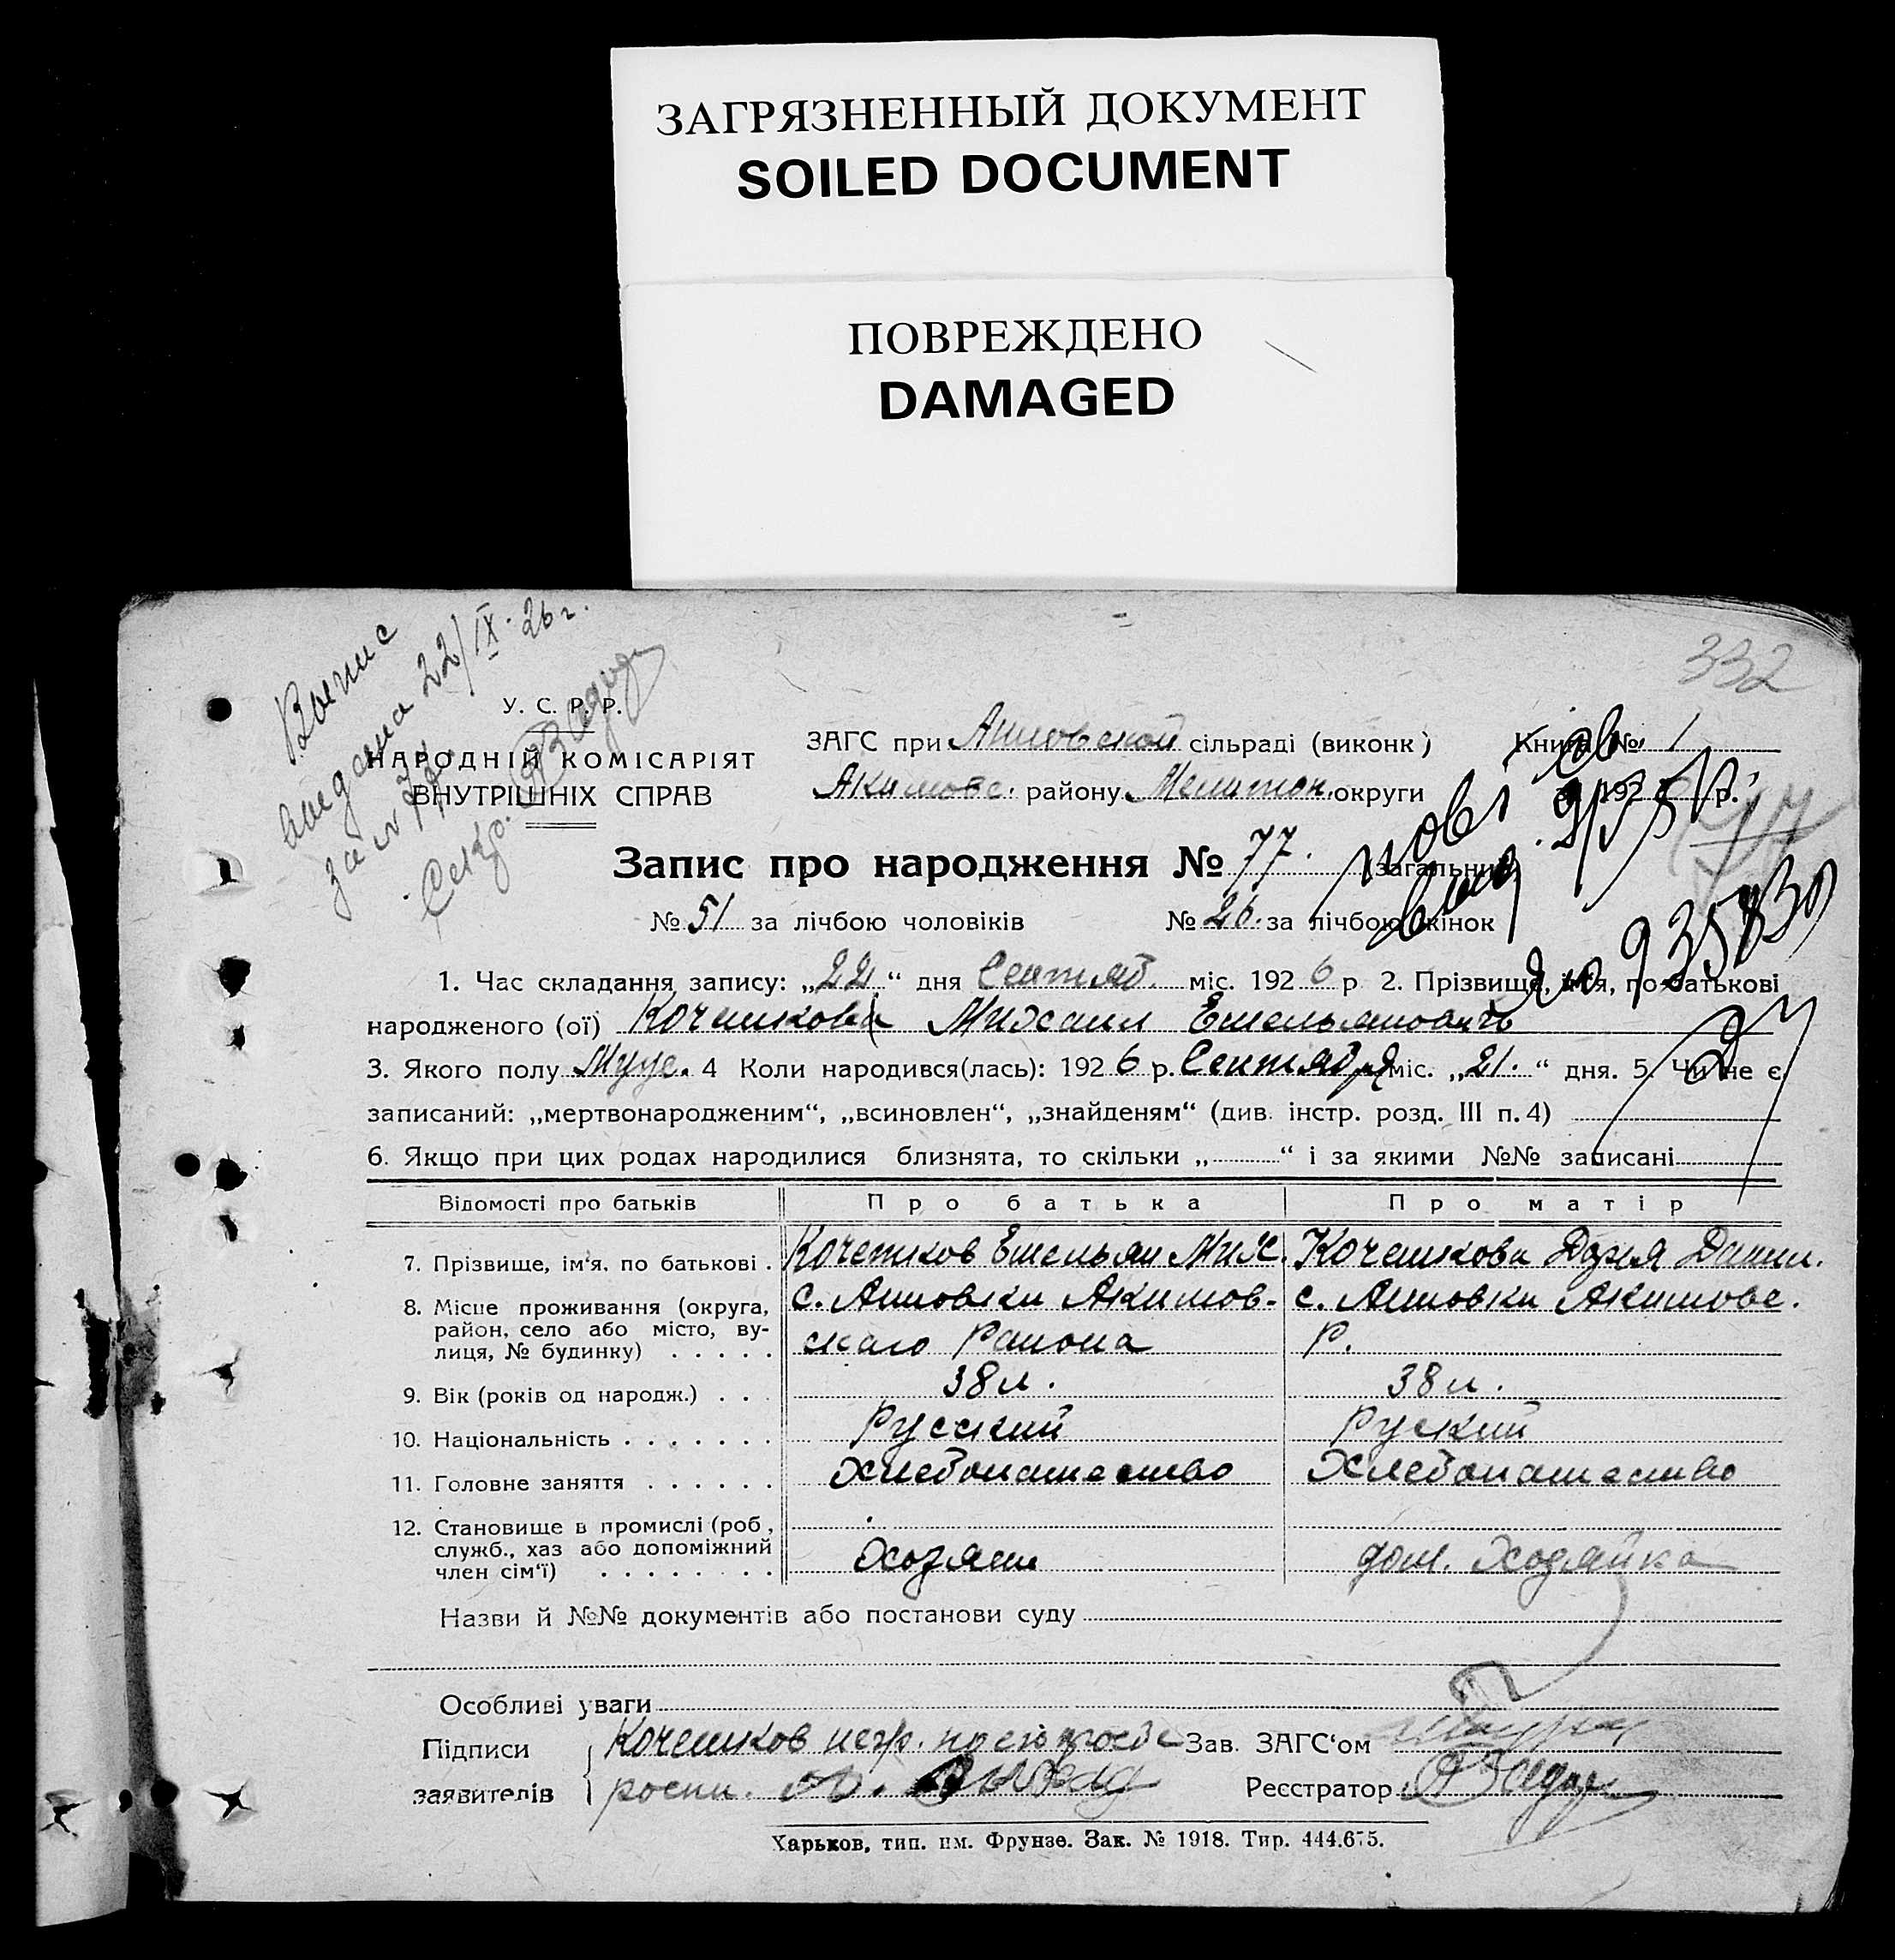 ЗАГРЯЗНЕННЫЙ ДОКУМЕНТ
SOILED DOCUMENT
ПОВРЕЖДЕНО
DAMAGED
332
22/IX-26 г.
за №
Секр.
У. С. Р. Р.
НАРОДНІЙ КОМІСАРІЯТ
ВНУТРІШНІХ СПРАВ
ЗАГС при сільраді (виконк) Книга № 1
Акимовс. району Мелитоп. округи 192 р.
Запис про народження № 77. загальний
№ 51 за лічбою чоловіків № 26. за лічбою жінок
1. Час складання запису: „22“ дня Сентяб. міс. 1926 р 2. Прізвище, ім'я, по-батькові
народженого (ої) Михаил Емельянович
3. Якого полу Муж. 4 Коли народився(лась): 1926 р. Сентября міс. „21.“ дня. 5. Чи не є
записаний: „мертвонародженим“, „всиновлен“, „знайденям“ (див. інстр. розд. III п. 4)
6. Якщо при цих родах народилися близнята, то скільки „ “ і за якими №№ записані
Відомості про батьків Про батька Про матір
7. Прізвище, ім'я, по батькові . Кочетков Емельян Мих. Кочеткова Дарья Данил.
8. Місце проживання (округа, район, село або місто, вулиця, № будинку) . . . . . с. Акимовского Района с. Акимовс. Р.
9. Вік (років од народж.) . . . 38 л. 38 л.
10. Національність . . . . . . . Русский Руский
11. Головне заняття . . . . . . Хлебопашество Хлебопашество
12. Становище в промислі (роб., служб., хаз або допоміжний член сім'ї) . . . . . . . . Хозяин дом. Хозяйка
Назви й №№ документів або постанови суду
Особливі уваги
Підписи Кочетков негр. по его просьбе Зав. ЗАГС'ом
заявителів роспи. Реєстратор
Харьков, тип. им. Фрунзе. Зак. № 1918. Тир. 444.675.